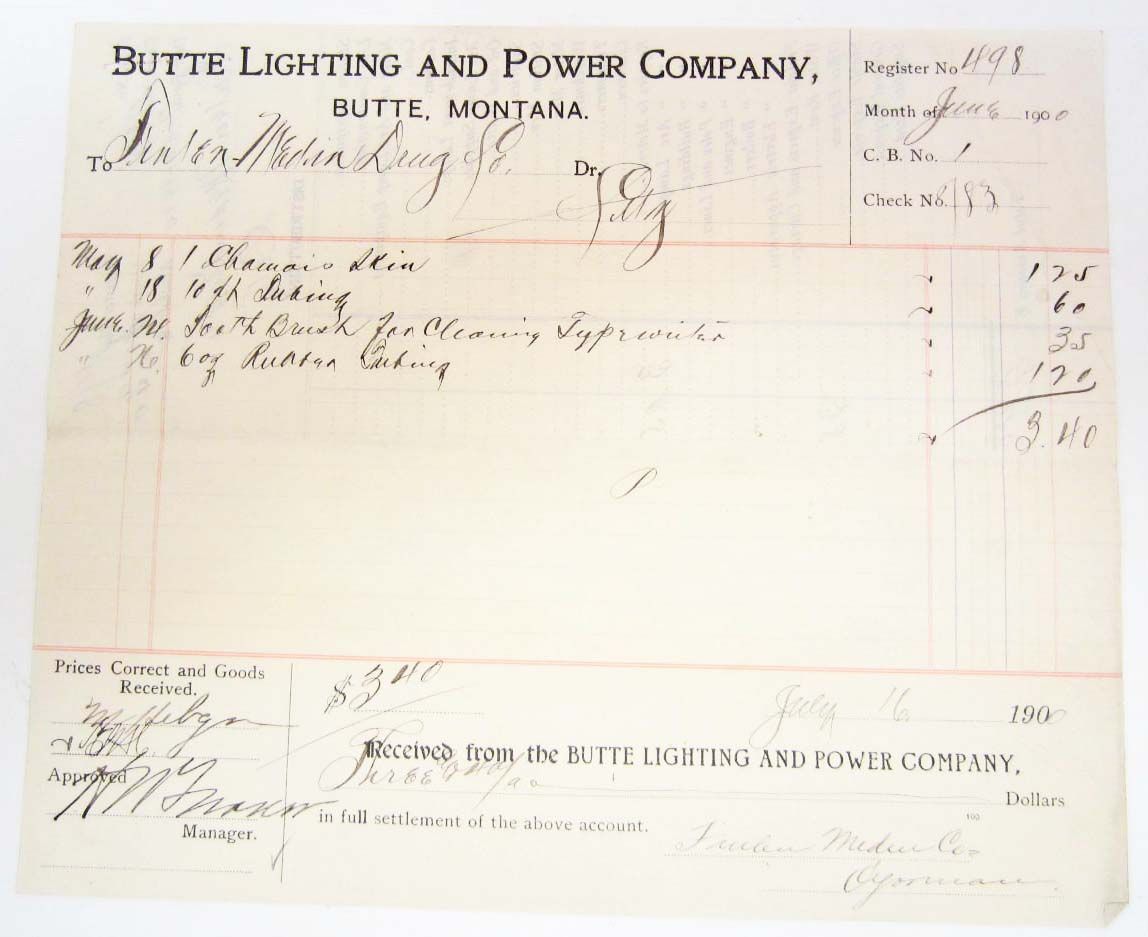 BUTTE LIGHTING AND POWER COMPANY,
BUTTE, MONTANA.
Register No 498
Month of June 1900
C. B. No. 1
Check No. 8183
To Finlen-Medin Drug Co. Dr.
City
May 8 1 Chamois Skin 1 25
" 18 10 ft Tubing 60
June Tooth Brush for Cleaning Typewriter 35
" 6 oz Rubber Tubing 1 20
3.40
Prices Correct and Goods
Received.
Approved
Manager.
$3 40
July 16 1900
Received from the BUTTE LIGHTING AND POWER COMPANY,
Three & 40/00 Dollars
100
in full settlement of the above account.
Finlen Medin Co